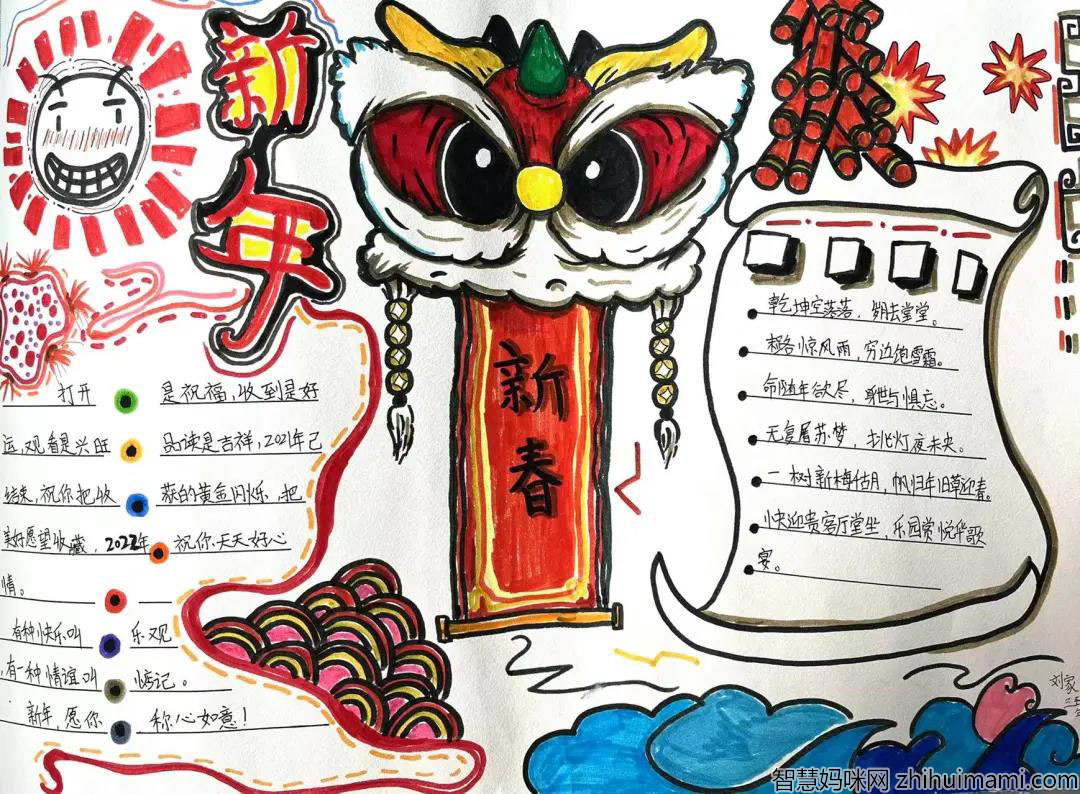 新年
打开 是祝福,收到是好
运,观看是兴旺 品读是吉祥,2021年已
结束,祝你把收 获的黄金闪烁,把
美好愿望收藏,2022年 祝你天天好心
情。
有种快乐叫 乐观
,有一种情谊叫 惦记。
新年,愿你 称心如意!
新春
乾坤空落落,岁月去堂堂。
末路惊风雨,穷边饱雪霜。
命随年欲尽,身世与俱忘。
无复屠苏梦,挑灯夜未央。
一树新梅估月,帆归年旧草迎春。
快迎贵客厅堂坐,乐园赏悦华歌
宴。
刘家
智慧妈咪网 zhihuimami.com